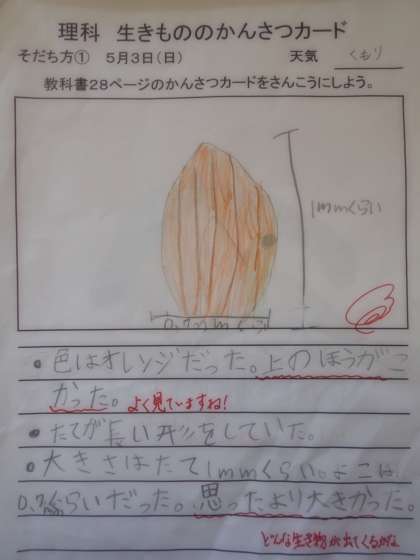 理科 生きもののかんさつカード
そだち方① 5月3日(日) 天気 くもり
教科書28ページのかんさつカードをさんこうにしよう。
1mmくらい
0.7mmくらい
●色はオレンジだった。上のほうがこ
かった。よく見ていますね!
●たてが長い形をしていた。
●大きさはたて1mmくらい。よこは
0.7ぐらいだった。思ったより大きかった。
どんな生き物が出てくるかな